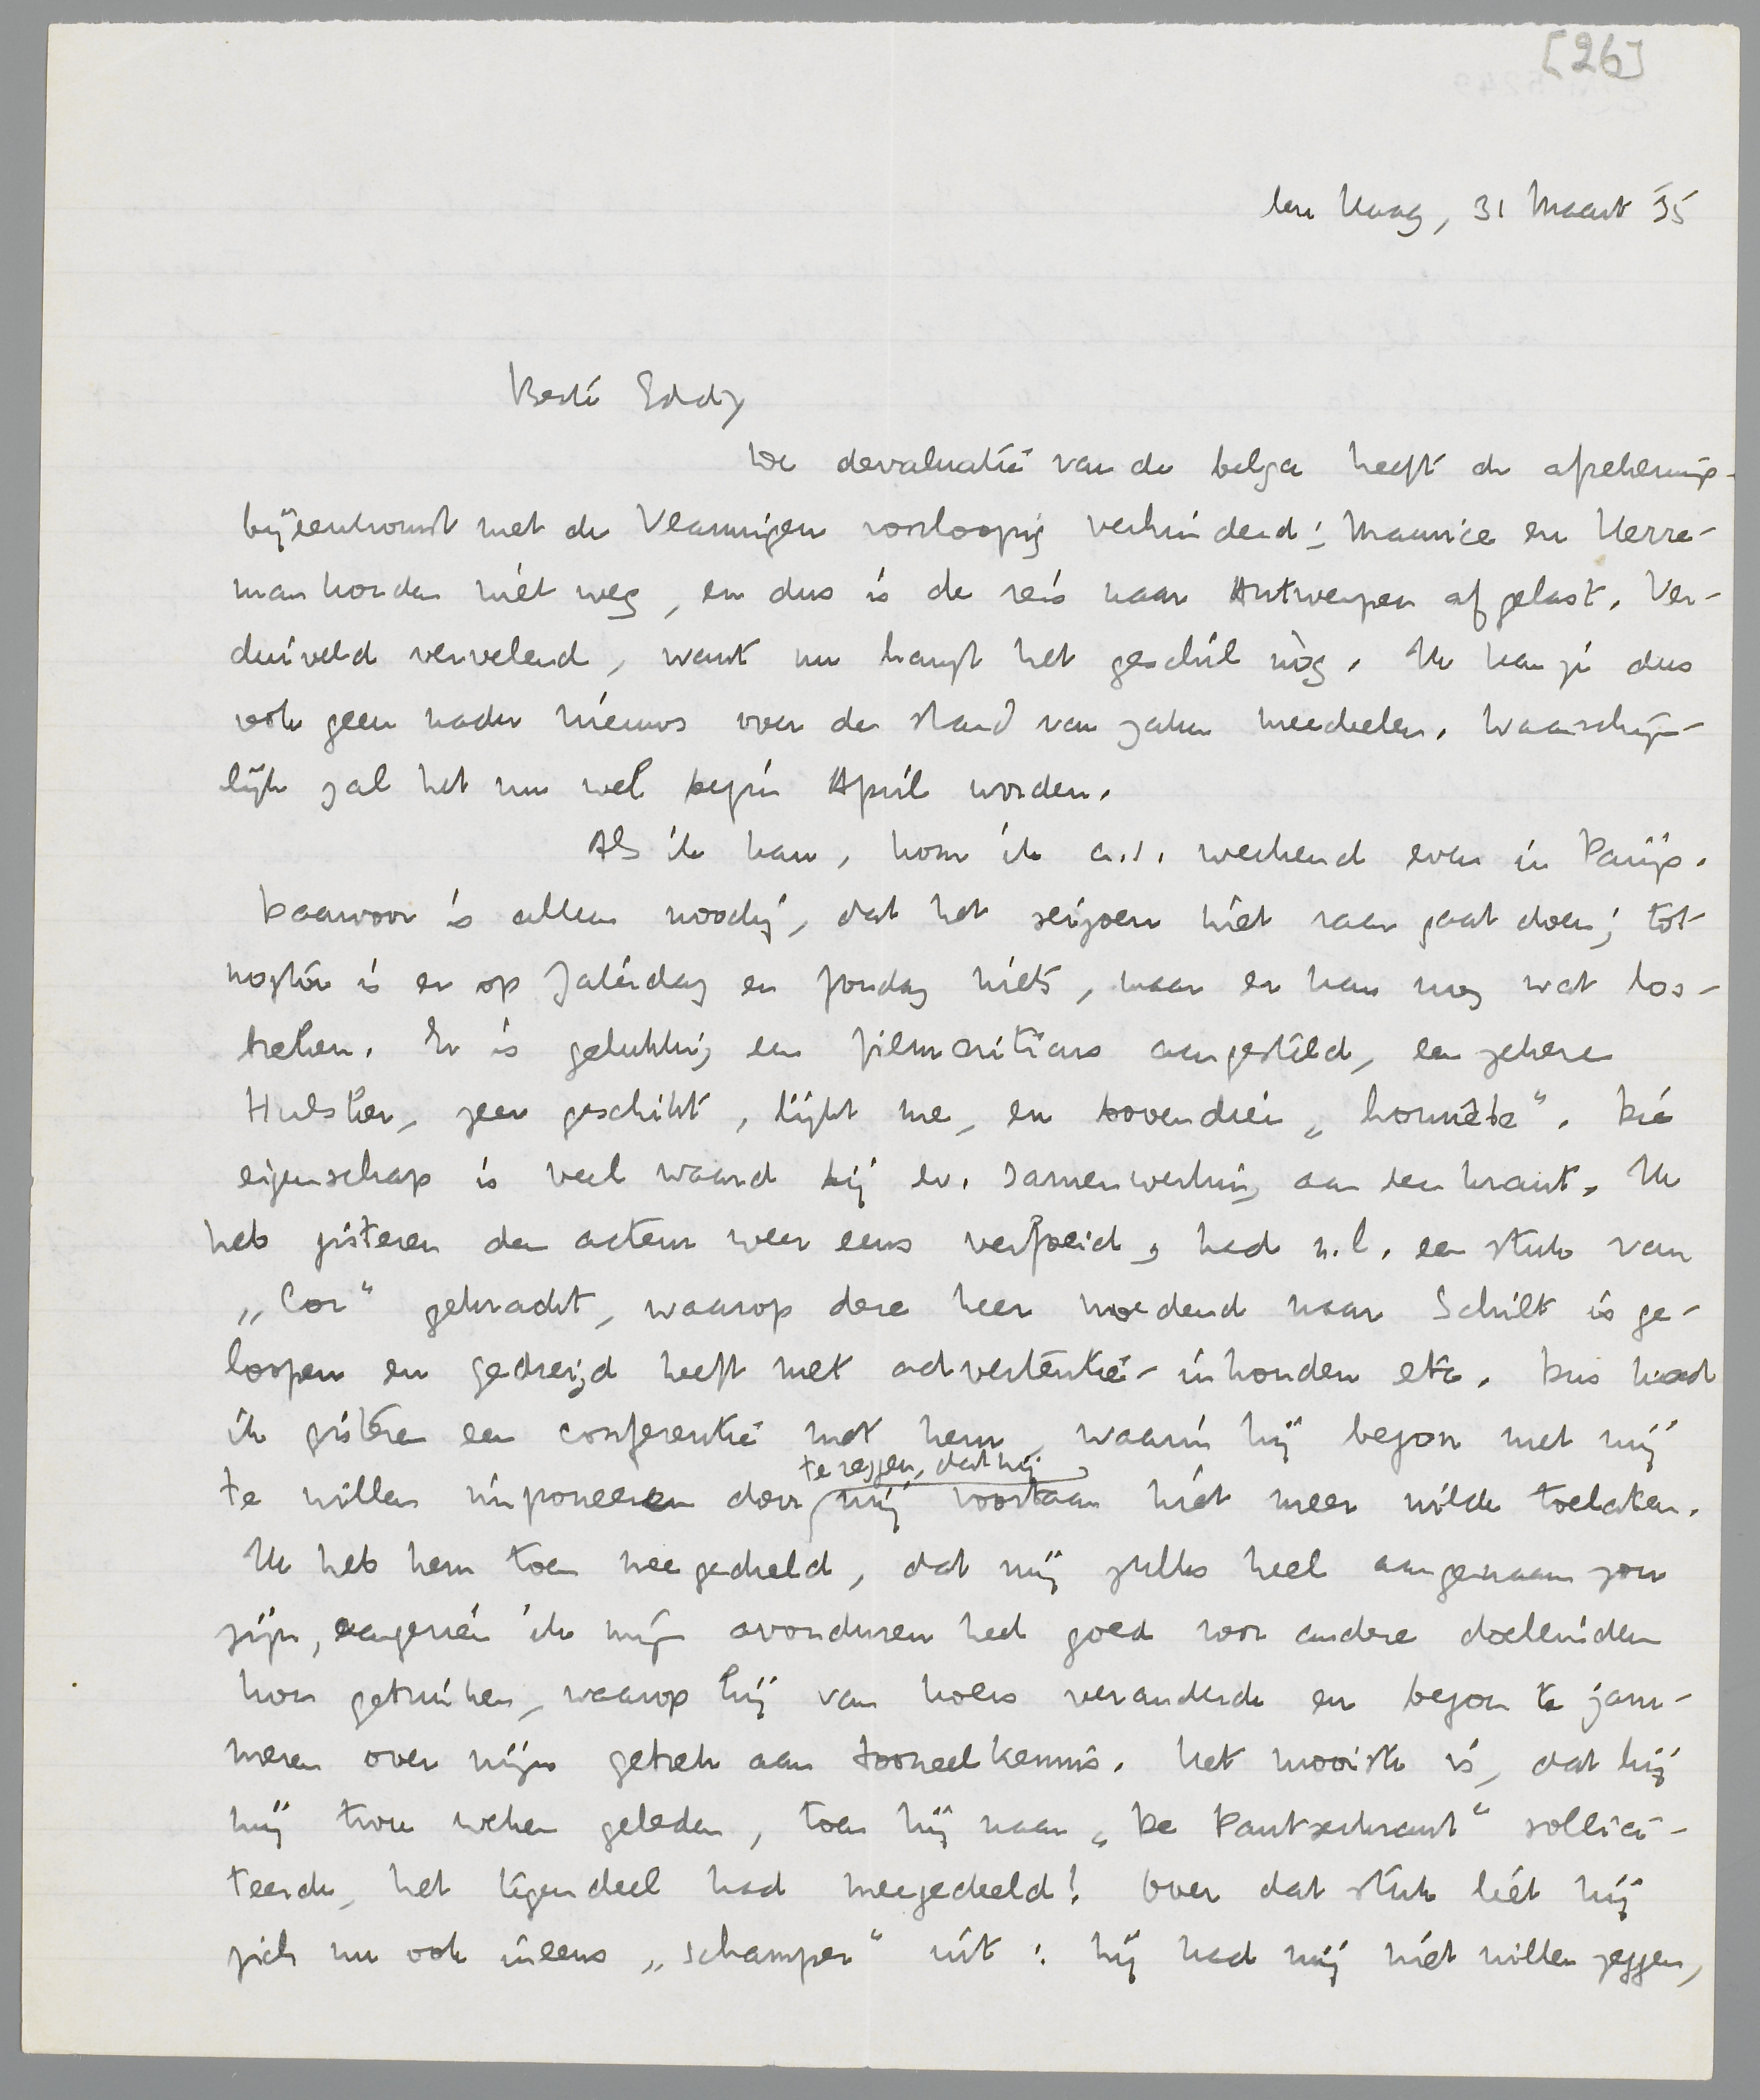 [26]
Den Haag, 31 Maart 35
Beste Eddy
De devaluatie van de belga heeft de afrekenings-
bijeenkomst met de Vlamingen voorloopig verhinderd; Maurice en Herre-
man konden niet weg, en dus is de reis naar Antwerpen afgelast. Ver-
duiveld vervelend, want nu hangt het geschil nòg. Ik kan je dus
ook geen nader nieuws over den stand van zaken meedeelen. Waarschijn-
lijk zal het nu wel begin April worden.
Als ik kan, kom ik a.s. weekend even in Parijs.
Daarvoor is alleen noodig, dat het seizoen niet raar gaat doen; tot
nogtoe is er op Zaterdag en Zondag niets, maar er kan nog wat los-
breken. Er is gelukkig een filmcriticus aangesteld, een zekere
Hulsker, zeer geschikt, lijkt me, en bovendien „honnête". Die
eigenschap is veel waard bij ev. samenwerking aan een krant. Ik
heb gisteren den acteur weer eens verfoeid, had n.l. een stuk van
„Cor" gekraakt, waarop deze heer woedend naar Schilt is ge-
loopen en gedreigd heeft met advertentie-inhouden etc. Dus had
ik gisteren een conferentie met hem, waarin hij begon met mij
te zeggen, dat hij
te willen imponeeren door mij voortaan niet meer wilde toelaten.
Ik heb hem toen meegedeeld, dat mij zulks heel aangenaam zou
zijn, aangezien ik mijn avonduren heel goed voor andere doeleinden
kon gebruiken, waarop hij van koers veranderde en begon te jam-
meren over mijn gebrek aan tooneelkennis. Het mooiste is, dat hij
mij twee weken geleden, toen hij naar „De Pantserkrant" sollici-
teerde, het tegendeel had meegedeeld! Over dat stuk liet hij
zich nu ook ineens „schamper" uit: hij had mij niet willen zeggen,